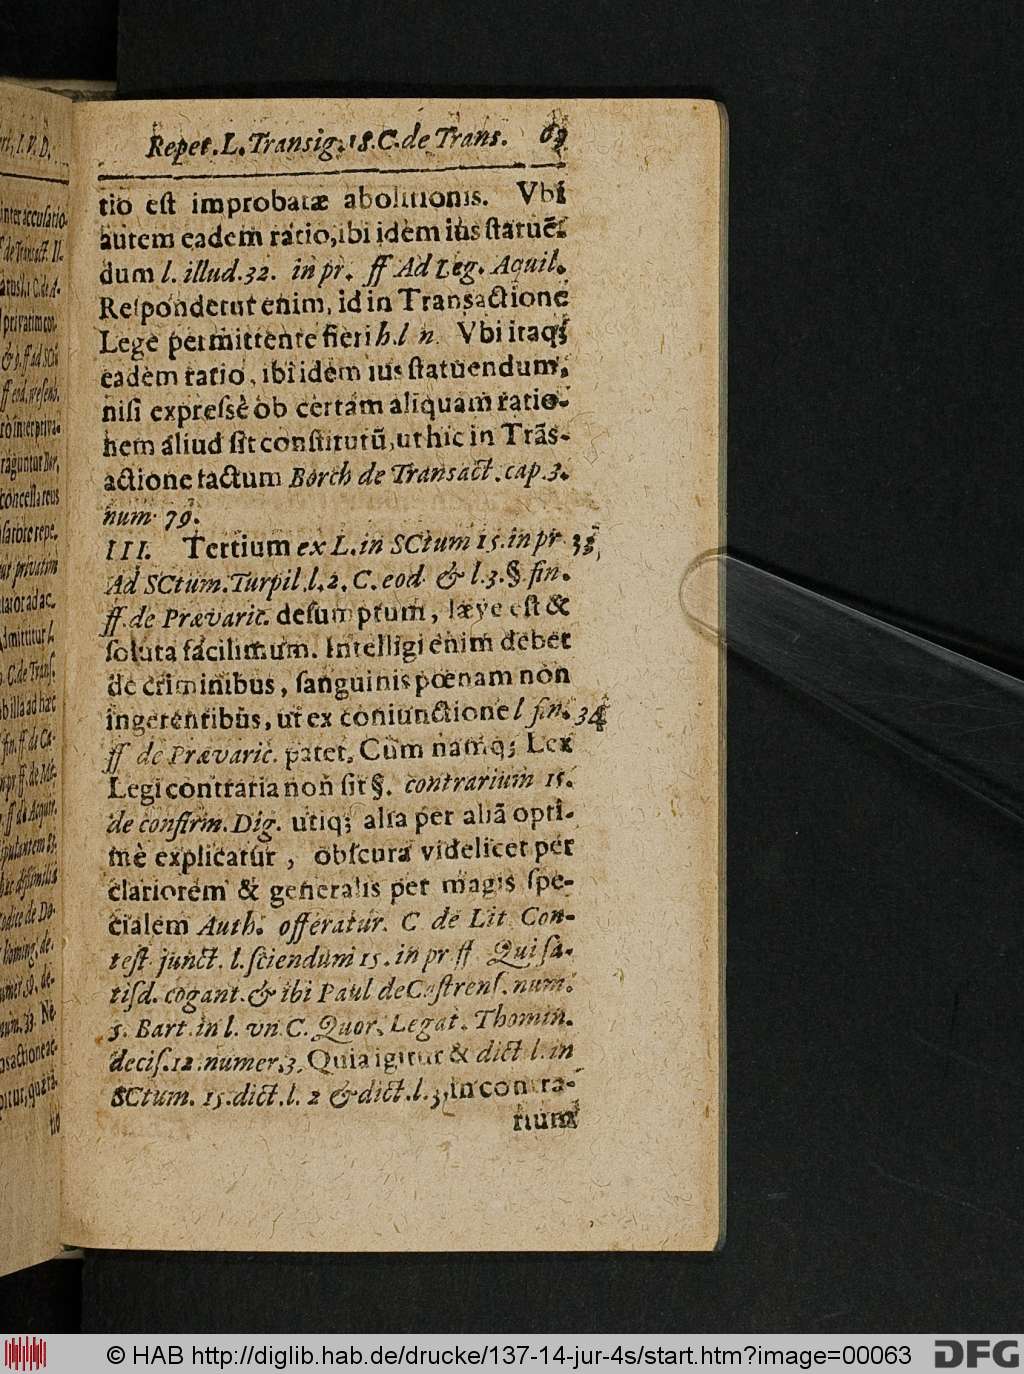 Repet. L. Transig. 18. C. de Trans.
tio est improbatæ abolitionis. Vbi
autem eadem ratio, ibi idem ius statuē-
dum l. illud. 32. in pr. ff Ad Leg. Aquil.
Respondetut enim, id in Transactione
Lege permittente fieri h. l n. Vbi itaq;
eadem ratio, ibi idem ius statuendum,
nisi expressè ob certam aliquam ratio-
nem aliud sit constitutū, ut hic in Trãs-
actione factum Borch de Transact. cap. 3.
num. 79.
III. Tertium ex L. in SCtum 15. in pr 33
Ad SCtum. Turpil. l. 2. C. eod & l. 3. §. fin.
ff. de Prævaric. desumptum, læve est &
solutu facilimum. Intelligi enim debet
de criminibus, sanguinis pœnam non
ingerentibus, ut ex coniunctione l fin. 34
ff de Prævaric. patet. Cum namq; Lex
Legi contraria non sit §. contrarium 15.
de confirm. Dig. utiq; alia per aliã opti-
mè explicatur, obscura videlicet per
clariorem & generalis per magis spe-
cialem Auth. offeratur. C de Lit Con-
test. junct. l. sciendum 15. in pr ff Qui sa-
tisd. cogant. & ibi Paul de Castrens. num.
5. Bart. in l. vn C. Quor. Legat. Thomin.
decis. 12. numer. 3. Quia igitur & dict l. in
SCtum. 15. dict. l. 2 & dict. l. 3, in contra-
rium
© HAB http://diglib.hab.de/drucke/137-14-jur-4s/start.htm?image=00063
DFG